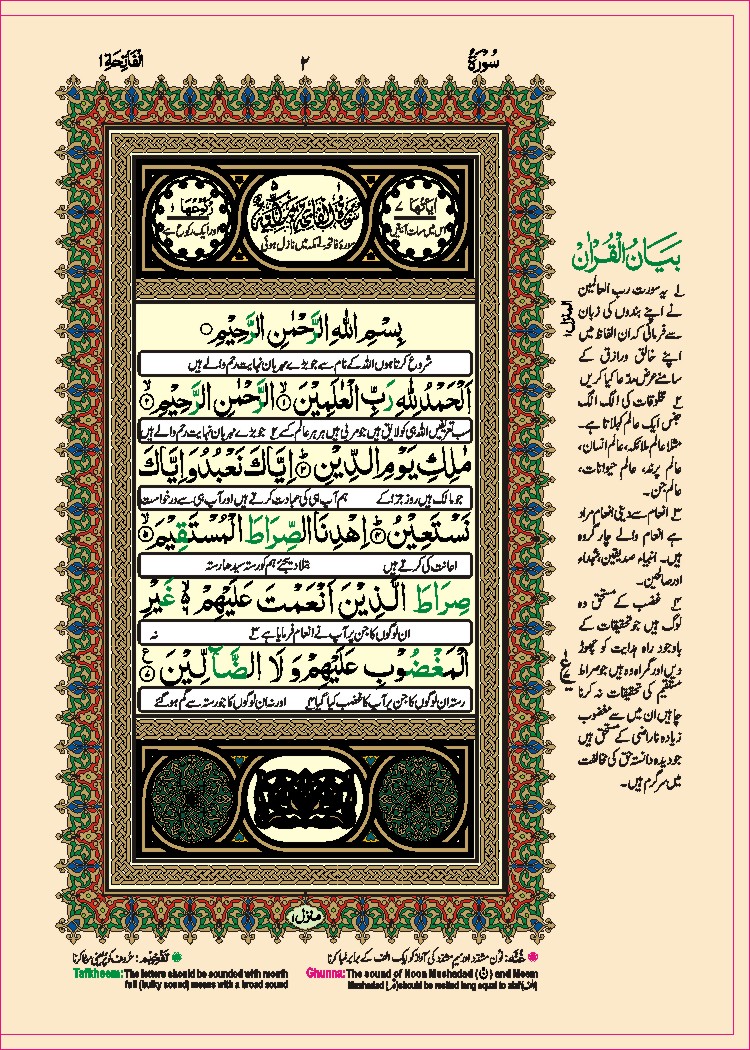 سورة
٢
الفاتحة ١
اٰیاتها ٧
اس میں سات آیتیں
سورة الفاتحة مكية
سورۃ فاتحہ مکہ میں نازل ہوئی
ركوعها ١
اور ایک رکوع ہے
بِسْمِ اللهِ الرَّحْمٰنِ الرَّحِيْمِ
شروع کرتا ہوں اللہ کے نام سے جو بڑے مہربان نہایت رحم والے ہیں
اَلْحَمْدُ لِلّٰهِ رَبِّ الْعٰلَمِيْنَ ١ الرَّحْمٰنِ الرَّحِيْمِ ٢
سب تعریفیں اللہ ہی کو لائق ہیں جو مربی ہیں ہر ہر عالم کے ٢ جو بڑے مہربان نہایت رحم والے ہیں
مٰلِكِ يَوْمِ الدِّيْنِ ٣ اِيَّاكَ نَعْبُدُ وَاِيَّاكَ
جو مالک ہیں روز جزا کے ہم آپ ہی کی عبادت کرتے ہیں اور آپ ہی سے درخواست
نَسْتَعِيْنُ ٤ اِهْدِنَا الصِّرَاطَ الْمُسْتَقِيْمَ ٥
اعانت کی کرتے ہیں بتلا دیجئے ہم کو رستہ سیدھا رستہ
صِرَاطَ الَّذِيْنَ اَنْعَمْتَ عَلَيْهِمْ ٦ غَيْرِ
ان لوگوں کا جن پر آپ نے انعام فرمایا ہے ٣ نہ
الْمَغْضُوْبِ عَلَيْهِمْ وَلَا الضَّآلِّيْنَ ٧
رستہ ان لوگوں کا جن پر آپ کا غضب کیا گیا ٤ اور نہ ان لوگوں کا جو رستہ سے گم ہو گئے
منزل ١
بيان القرآن
المنزل ١
١ یہ سورت رب العالمین
نے اپنے بندوں کی زبان
سے فرمائی کہ ان الفاظ میں
اپنے خالق و رازق کے
سامنے عرض مدعا کیا کریں
٢ مخلوقات کی الگ الگ
جنس ایک عالم کہلاتا ہے۔
مثلاً عالم ملائکہ، عالم انسان،
عالم پرند، عالم حیوانات،
عالم جن۔
٣ انعام سے دینی انعام مراد
ہے انعام والے چار گروہ
ہیں۔ انبیاء صدیقین، شہداء
اور صالحین۔
٤ غضب کے مستحق وہ
لوگ ہیں جو تحقیقات کے
باوجود راہ ہدایت کو چھوڑ
دیں اور گمراہ وہ ہیں جو صراط
مستقیم کی تحقیقات نہ کرنا
چاہیں ان میں سے مغضوب
زیادہ ناراضی کے مستحق ہیں
جو دیدہ دانستہ حق کی مخالفت
میں سرگرم ہیں۔
غُنَّه: نون مشدد اور میم مشدد کی آواز کو ایک الف کے برابر لمبا کرنا
Ghunna: The sound of Noon Mushadad (نّ) and Meem
Mushadad (مّ) should be recited long equal to alaf (الف)
تفخيم: حروف کو پُر یعنی موٹا کرنا
Tafkheem: The letters should be sounded with mouth
full (bulky sound) means with a broad sound